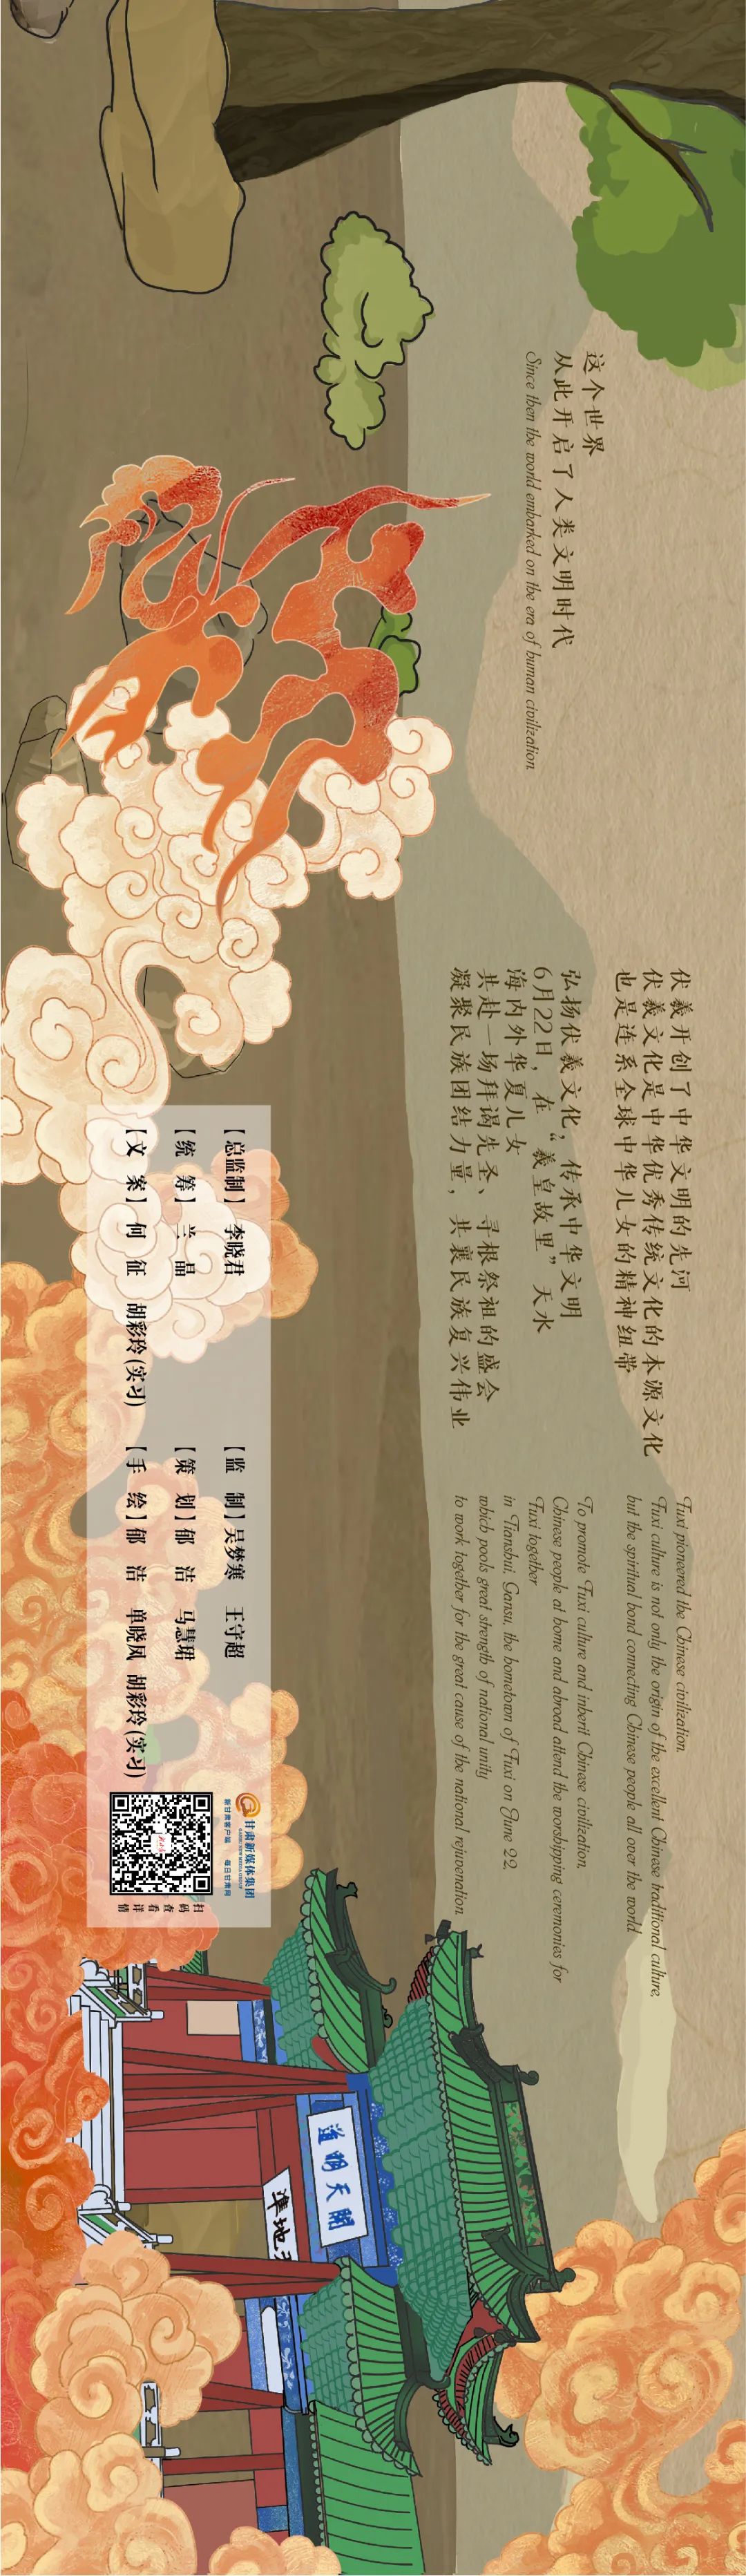 这个世界
从此开启了人类文明时代
Since then the world embarked on the era of human civilization.
伏羲开创了中华文明的先河
伏羲文化是中华优秀传统文化的本源文化
也是连系全球中华儿女的精神纽带
弘扬伏羲文化，传承中华文明
6月22日，在“羲皇故里”天水
海内外华夏儿女
共赴一场拜谒先圣、寻根祭祖的盛会
凝聚民族团结力量，共襄民族复兴伟业
Fuxi pioneered the Chinese civilization.
Fuxi culture is not only the origin of the excellent Chinese traditional culture,
but the spiritual bond connecting Chinese people all over the world.
To promote Fuxi culture and inherit Chinese civilization,
Chinese people at home and abroad attend the worshipping ceremonies for
Fuxi together
in Tianshui, Gansu, the hometown of Fuxi on June 22,
which pools great strength of national unity
to work together for the great cause of the national rejuvenation.
【总监制】李晓君 【监 制】吴梦寒 王守超
【统 筹】兰 晶 【策 划】郁 洁 马慧珺
【文 案】何 征 胡彩玲(实习) 【手 绘】郁 洁 单晓凤 胡彩玲(实习)
甘肃新媒体集团
GANSU NEW MEDIA GROUP
新甘肃客户端 每日甘肃网
扫码查看详情
道明天開
準地